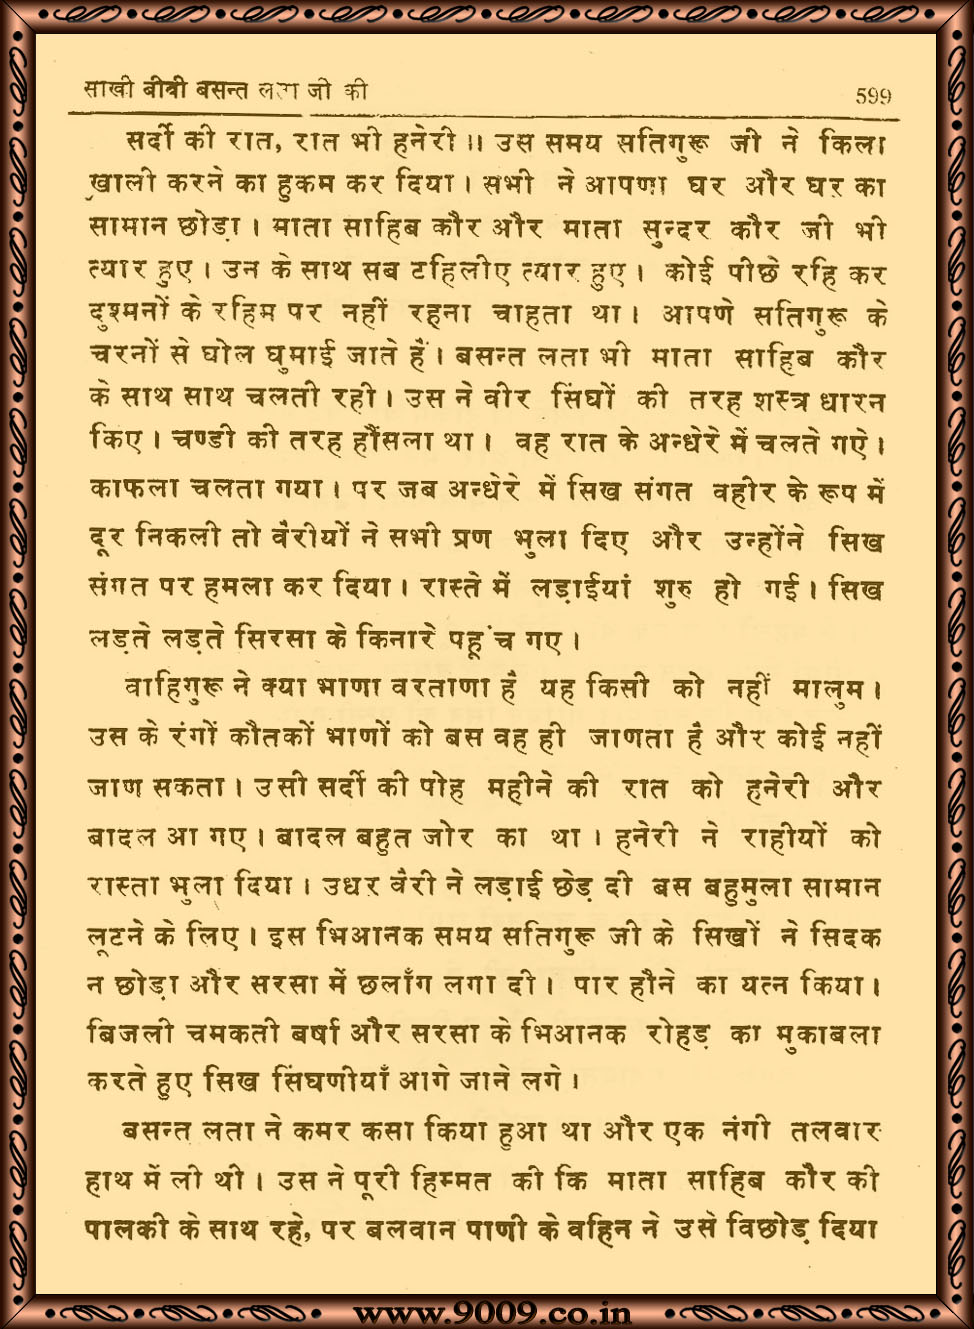 साखी बीवी बसन्त लता जी की
599
सर्दी की रात, रात भी हनेरी ।। उस समय सतिगुरू जी ने किला
खाली करने का हुकम कर दिया । सभी ने आपणा घर और घर का
सामान छोडा । माता साहिब कौर और माता सुन्दर कौर जी भी
त्यार हुए । उन के साथ सब टहिलीए त्यार हुए । कोई पीछे रहि कर
दुश्मनों के रहिम पर नहीं रहना चाहता था । आपणे सतिगुरू के
चरनों से घोल घुमाई जाते हैं । बसन्त लता भी माता साहिब कौर
के साथ साथ चलती रही । उस ने वीर सिंघों की तरह शस्त्र धारन
किए । चण्डी की तरह हौंसला था । वह रात के अन्धेरे में चलते गऐ ।
काफला चलता गया । पर जब अन्धेरे में सिख संगत वहीर के रूप में
दूर निकली तो वैरीयों ने सभी प्रण भुला दिए और उन्होंने सिख
संगत पर हमला कर दिया । रास्ते में लड़ाईयां शुरु हो गई । सिख
लड़ते लड़ते सिरसा के किनारे पहूंच गए ।
वाहिगुरू ने क्या भाणा वरताणा है यह किसी को नहीं मालुम ।
उस के रंगों कौतकों भाणों को बस वह ही जाणता है और कोई नहीं
जाण सकता । उसी सर्दी की पोह महीने की रात को हनेरी और
बादल आ गए । बादल बहुत जोर का था । हनेरी ने राहीयों को
रास्ता भुला दिया । उधर वैरी ने लड़ाई छेड़ दी बस बहुमुला सामान
लूटने के लिए । इस भिआनक समय सतिगुरू जी के सिखों ने सिदक
न छोड़ा और सरसा में छलाँग लगा दी । पार हौने का यत्न किया ।
बिजली चमकती बर्षा और सरसा के भिआनक रोहड़ का मुकाबला
करते हुए सिख सिंघणीयाँ आगे जाने लगे ।
बसन्त लता ने कमर कसा किया हुआ था और एक नंगी तलवार
हाथ में ली थी । उस ने पूरी हिम्मत की कि माता साहिब कौर की
पालकी के साथ रहे, पर बलवान पाणी के वहिन ने उसे विछोड़ दिया
www.9009.co.in